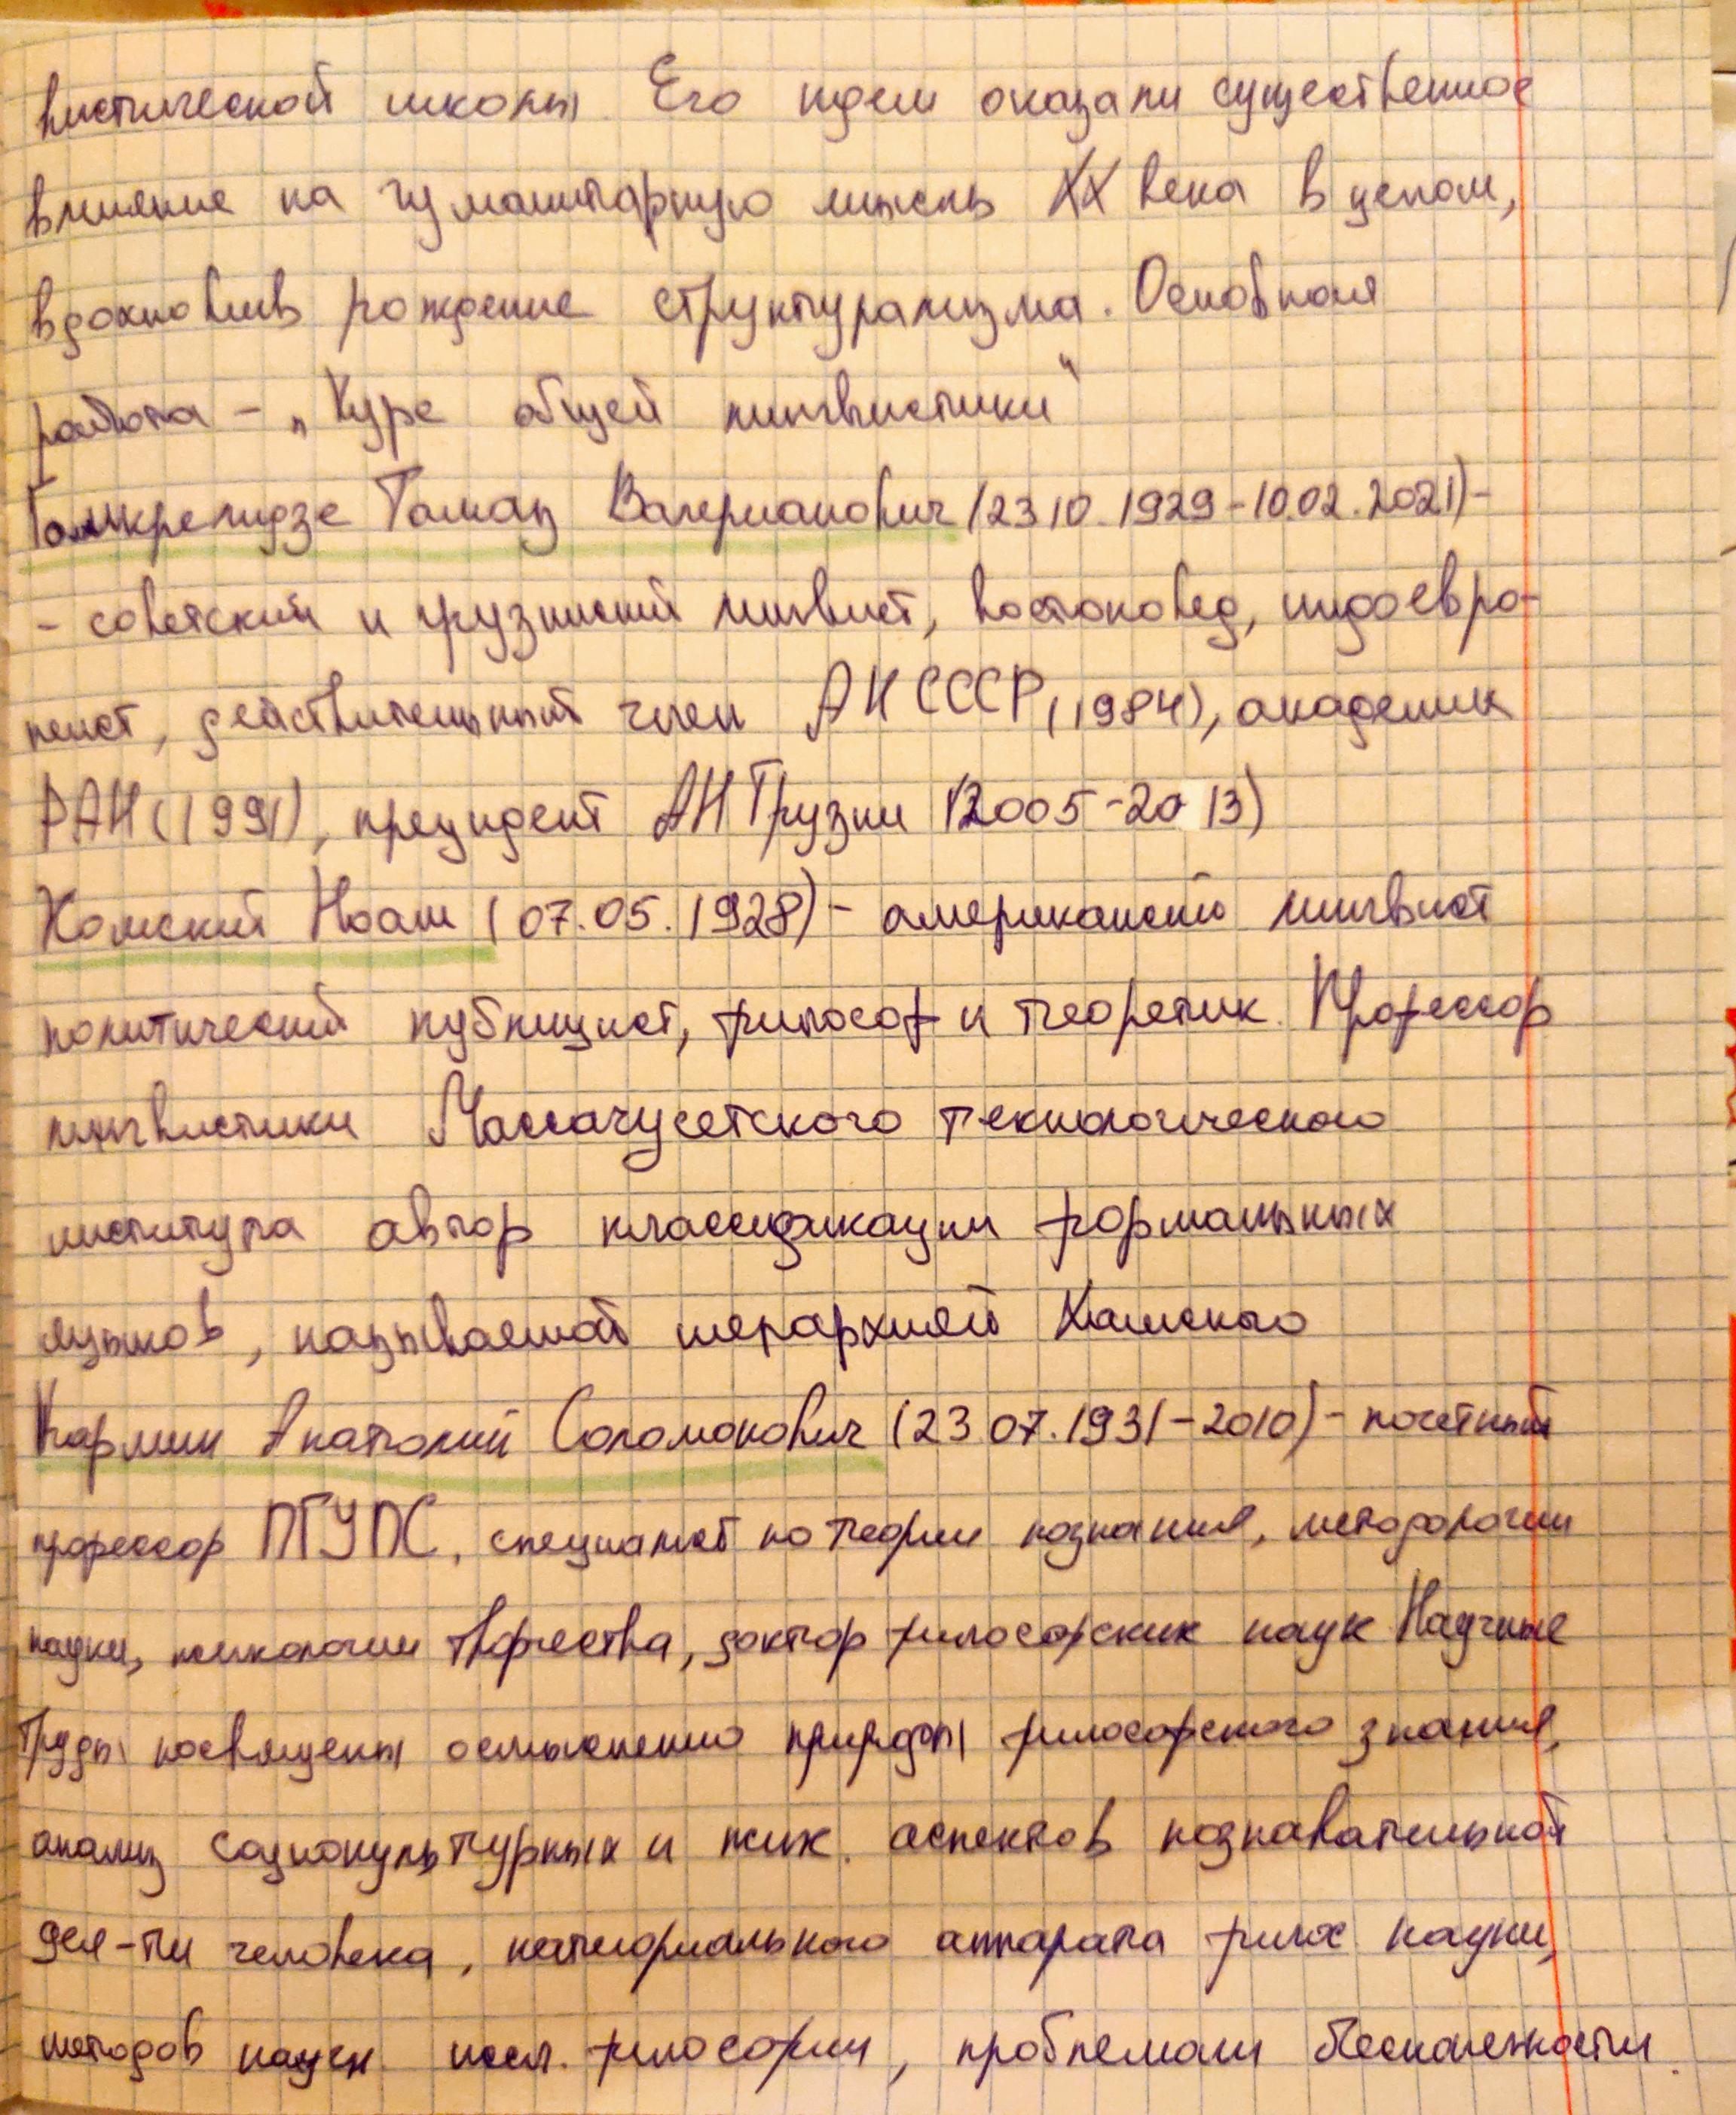 вистической школы. Его идеи оказали существенное
влияние на гуманитарную мысль XX века в целом,
вдохновив рождение структурализма. Основная
работа – „Курс общей лингвистики“
Гамкрелидзе Тамаз Валерианович (23.10.1929-10.02.2021)-
- советский и грузинский лингвист, востоковед, индоевро-
пеист, действительный член АН СССР (1984), академик
РАН (1991), президент АН Грузии (2005-2013)
Хомский Ноам (07.05.1928) - американский лингвист
политический публицист, философ и теоретик. Профессор
лингвистики Массачусетского технологического
института автор классификации формальных
языков, называемой иерархией Хомского
Кармин Анатолий Соломонович (23.07.1931-2010) - почетный
профессор ПГУПС, специалист по теории познания, методологии
науки, психологии творчества, доктор философских наук Научные
труды посвящены осмыслению природы философского знания,
анализ социокультурных и псих. аспектов познавательной
дея-ти человека, категориального аппарата филос науки,
методов научн. иссл. философии, проблемам бесконечности.